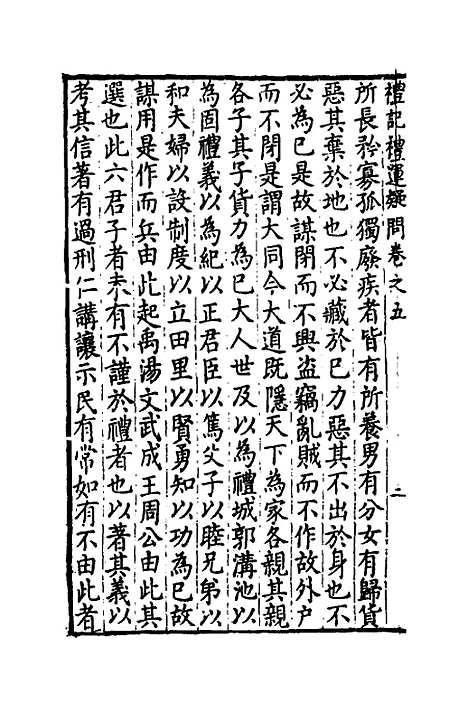 禮記禮運疑問卷之五 二
所長矜寡孤獨廢疾者皆有所養男有分女有歸貨
惡其棄於地也不必藏於已力惡其不出於身也不
必為已是故謀閉而不興盜竊亂賊而不作故外戶
而不閉是謂大同今大道既隱天下為家各親其親
各子其子貨力為已大人世及以為禮城郭溝池以
為固禮義以為紀以正君臣以篤父子以睦兄弟以
和夫婦以設制度以立田里以賢勇知以功為已故
謀用是作而兵由此起禹湯文武成王周公由此其
選也此六君子者未有不謹於禮者也以著其義以
考其信著有過刑仁講讓示民有常如有不由此者